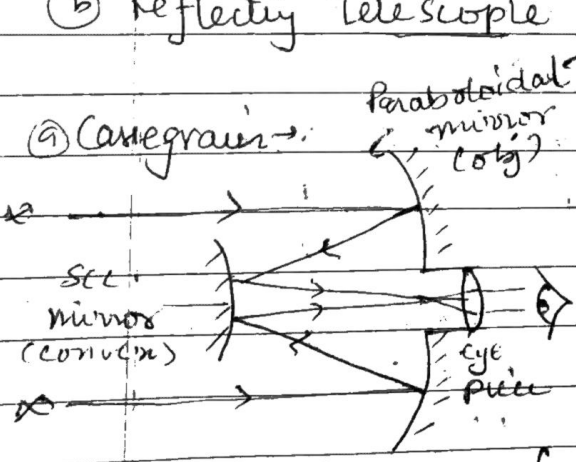 (b) Reflecting Telescope
(a) Cassegrain →
Paraboloidal
mirror
(obj)
∞
Sec
mirror
(convex)
Eye
piece
∞